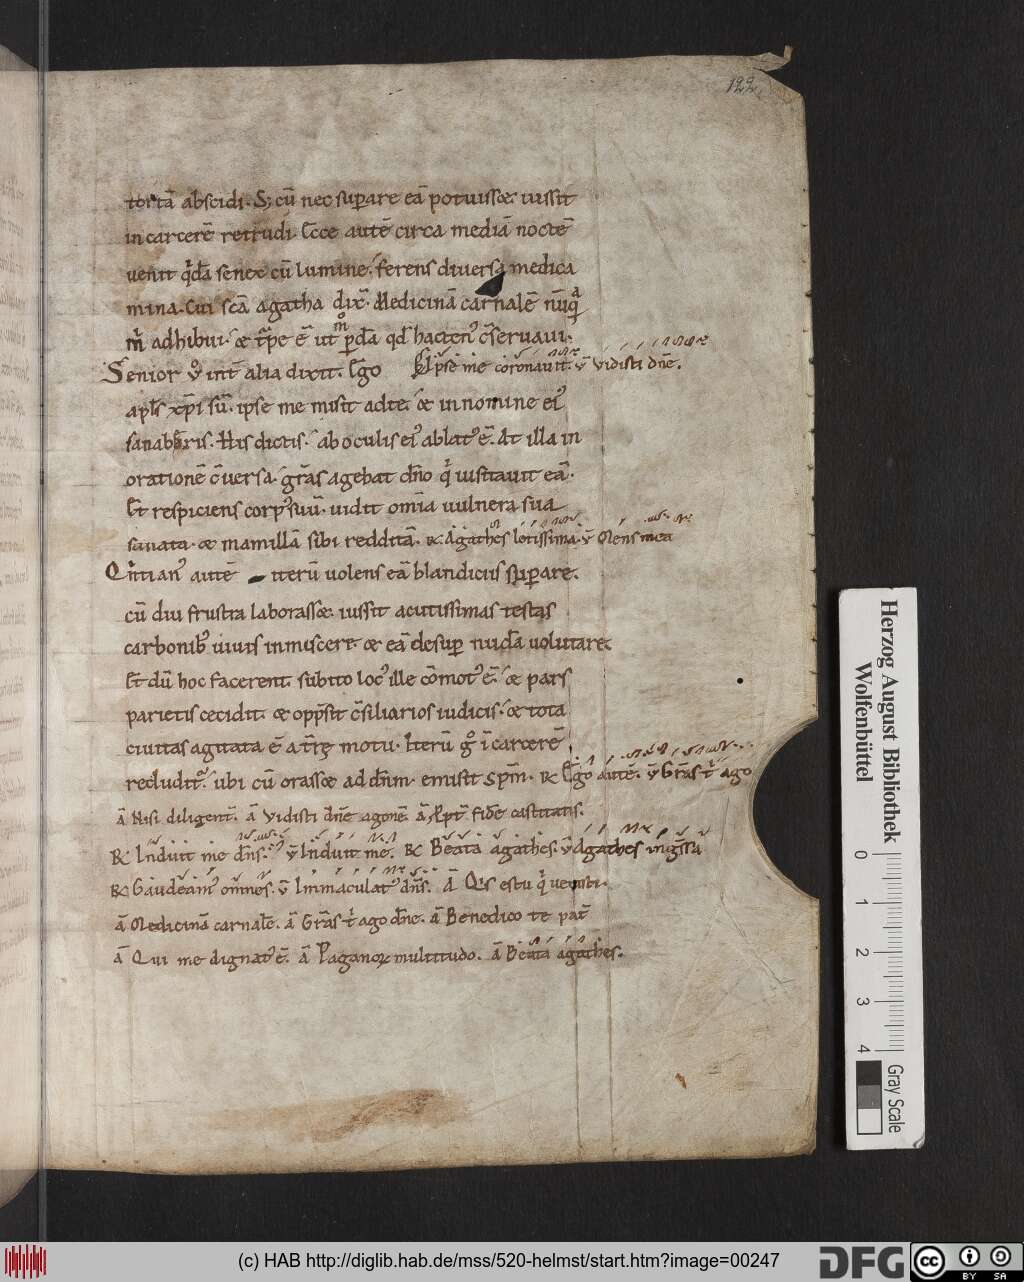 122
tortā abscidi. S; cū nec supare eā potuisset. iussit
in carcerē retrudi. Ecce autē circa mediā noctē
uenit qdā senex cū lumine. ferens diuersa medica
mina. Cui scā agatha dix. Medicinā carnalē nūqā
m adhibui. & tpe ē ut pdā qd hacten cseruaui.
Senior v int alia dixit. Ego Ipse me coronauit. v Vidisti dne.
apls xpi sū. ipse me misit ad te. & in nomine ei
sanaberis. His dictis. ab oculis ei ablat ē. At illa in
orationē cuersa. gras agebat dno q uisitauit eā.
Et respiciens corp suū. uidit omia uulnera sua
sanata. & mamillā sibi redditā. R Agathes letissima. v Mens mea
Qntian autē iterū uolens eā blandiciis supare.
cū diu frustra laborasset. iussit acutissimas testas
carbonib uiuis inmiscere. & eā desup nudā uolutare.
Et dū hoc facerent. subito loc ille comot ē. & pars
parietis cecidit. & oppsit csiliarios iudicis. & tota
ciuitas agitata ē a tre motu. Iterū g i carcerē
recludit. ubi cū orasset ad dnm. emisit spm. R Ego autē. v Gras t ago
a Nisi diligent. a Vidisti dne agonē. a Ppt fidē castitatis.
R Induit me dns. v Induit me. R Beata agathes. v Agathes ingssa
R Gaudeam omnes. v Immaculat dns. a Qis es tu q uenisti.
a Medicinā carnale. a Gras t ago dne. a Benedico te pat
a Qui me dignat ē. a Paganor multitudo. a Beata agathes.
Herzog August Bibliothek
Wolfenbüttel
0 1 2 3 4
Gray Scale
(c) HAB http://diglib.hab.de/mss/520-helmst/start.htm?image=00247
DFG
cc BY SA